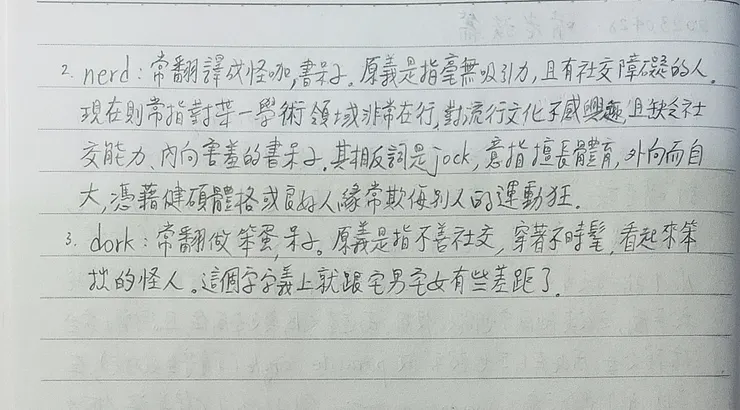 2. nerd：常翻譯成怪咖,書呆子。原義是指毫無吸引力,且有社交障礙的人。
現在則常指對某一學術領域非常在行,對流行文化不感興趣且缺乏社
交能力、內向害羞的書呆子。其相反詞是jock,意指擅長體育,外向而自
大,憑藉健碩體格或良好人緣常欺侮別人的運動狂。
3. dork：常翻做笨蛋,呆子。原義是指不善社交,穿著不時髦,看起來笨
拙的怪人。這個字字義上就跟宅男宅女有些差距了。